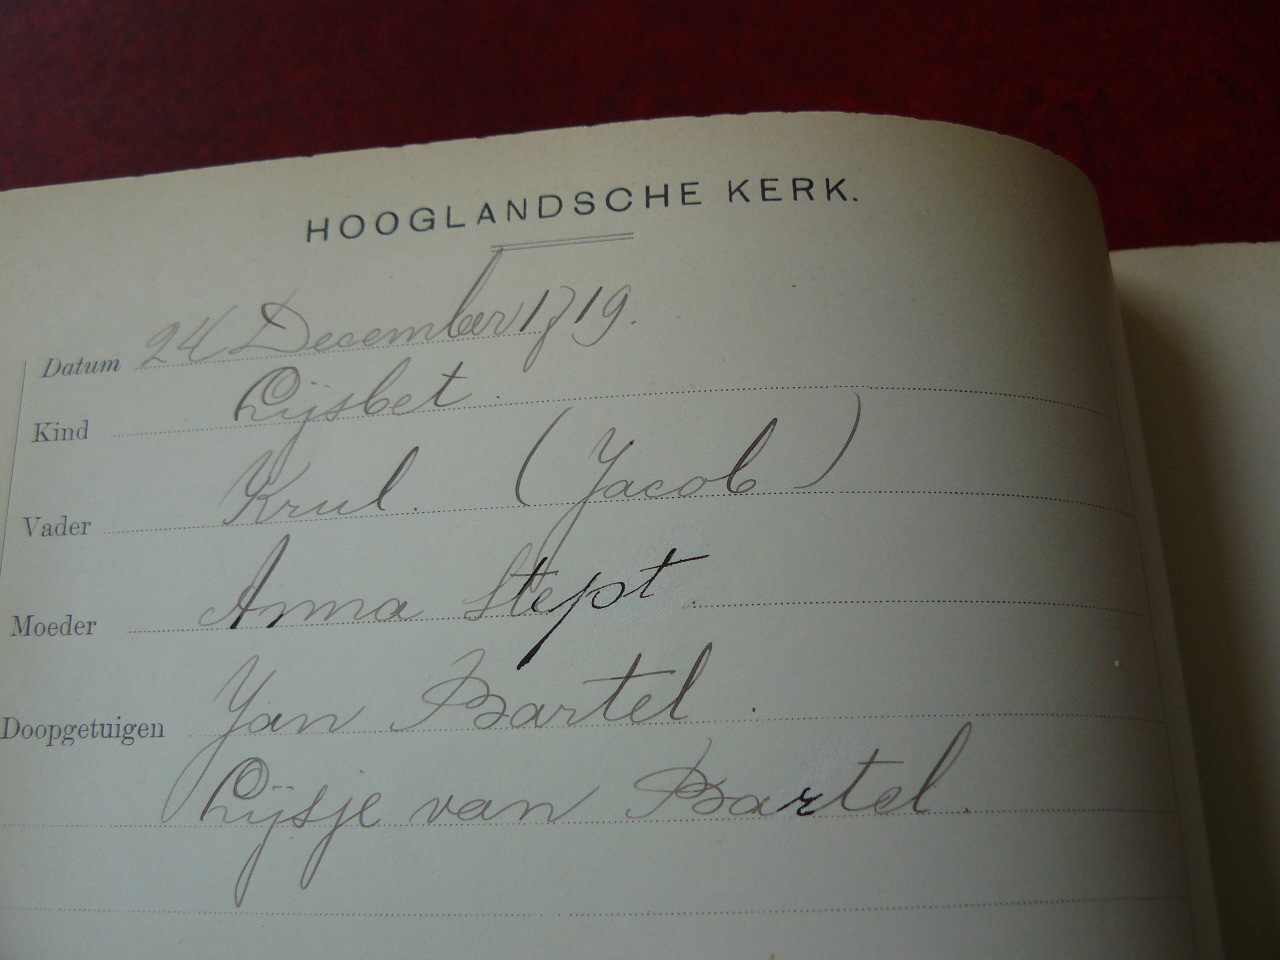 HOOGLANDSCHE KERK.
Datum 24 December 1719.
Kind Lijsbet.
Vader Krul. (Jacob)
Moeder Anna Stept.
Doopgetuigen Jan Bartel.
Lijsje van Bartel.